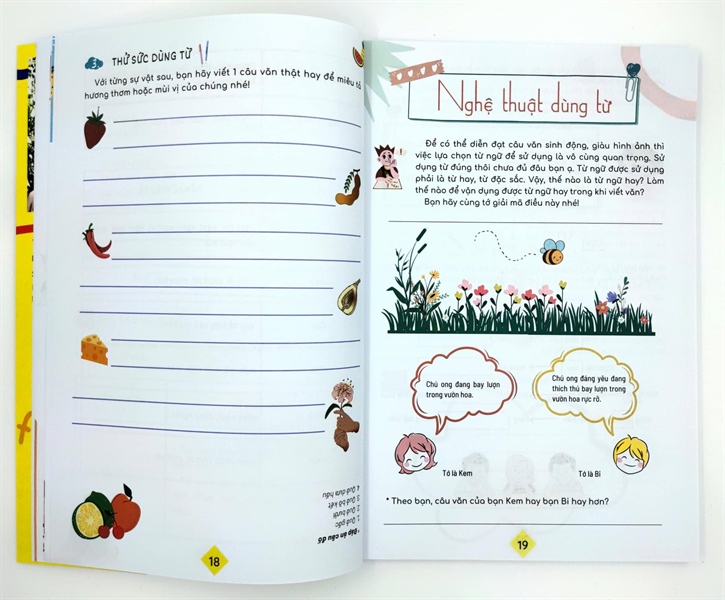 3 THỬ SỨC DÙNG TỪ
Với từng sự vật sau, bạn hãy viết 1 câu văn thật hay để miêu tả
hương thơm hoặc mùi vị của chúng nhé!
* Đáp án câu đố
1. Quả gấc
2. Quả bưởi
3. Quả bồ kết
4. Quả dưa hấu
18
Nghệ thuật dùng từ
Để có thể diễn đạt câu văn sinh động, giàu hình ảnh thì
việc lựa chọn từ ngữ để sử dụng là vô cùng quan trọng. Sử
dụng từ đúng thôi chưa đủ đâu bạn ạ. Từ ngữ được sử dụng
phải là từ hay, từ đặc sắc. Vậy, thế nào là từ ngữ hay? Làm
thế nào để vận dụng được từ ngữ hay trong khi viết văn?
Bạn hãy cùng tớ giải mã điều này nhé!
Chú ong đang bay lượn
trong vườn hoa.
Chú ong đáng yêu đang
thích thú bay lượn trong
vườn hoa rực rỡ.
Tớ là Kem
Tớ là Bi
* Theo bạn, câu văn của bạn Kem hay bạn Bi hay hơn?
19